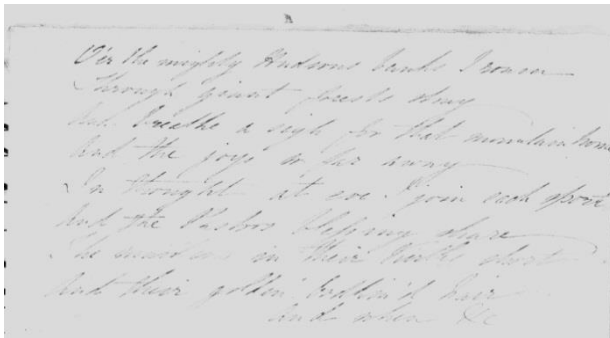 O'er the mighty Hudsons banks I roam
Through giant forests stray
And breathe a sigh for that mountain home
And the joys so far away
In thought at eve I join each sport
And the Pastors blessing share
The maidens in their kirtles short
And their golden bodkin'd hair
And when &c